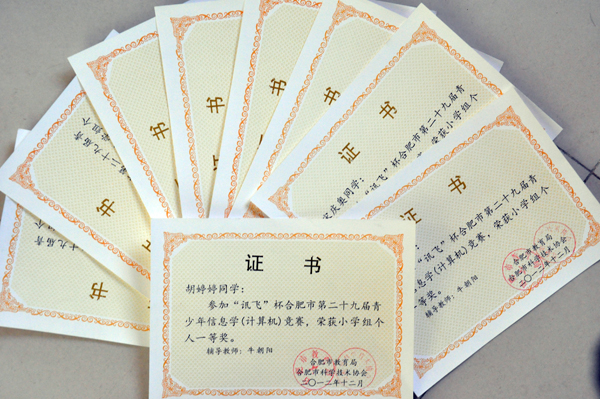 证 书
胡婷婷同学：
参加“讯飞”杯合肥市第二十九届青
少年信息学（计算机）竞赛，荣获小学组个
人一等奖。
辅导教师：牛朝阳
合肥市教育局
合肥市科学技术协会
二〇一二年十二月
证 书
“讯飞”杯合肥市第二十九届青
息学（计算机）竞赛，荣获小学组个
等奖。
辅导教师：牛朝阳
合肥市教育局
合肥市科学技术协会
二〇一二年十二月
证 书
庆奥同学：
“讯飞”杯合肥市第二十九届青
荣获小学组个
证 书
书
书
书
证 书
二十九届青
书
十九届青